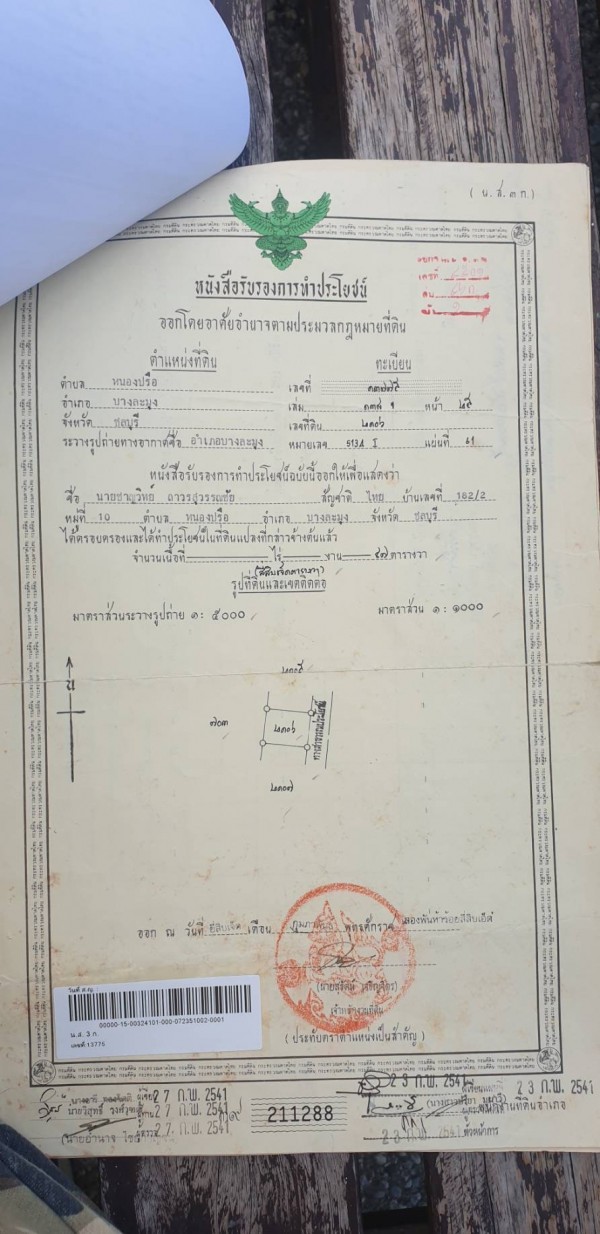 ( น.ส.๓ ก.)
หนังสือรับรองการทำประโยชน์
ออกโดยอาศัยอำนาจตามประมวลกฎหมายที่ดิน
ตำแหน่งที่ดิน
ทะเบียน
ตำบล หนองปรือ
เลขที่ ๑๓๗๗๕
อำเภอ บางละมุง
เล่ม หน้า ๒๕
จังหวัด ชลบุรี
เลขที่ดิน ๒๑๐๖
ระวางรูปถ่ายทางอากาศชื่อ อำเภอบางละมุง หมายเลข I แผ่นที่
หนังสือรับรองการทำประโยชน์ฉบับนี้ออกให้เพื่อแสดงว่า
ชื่อ นายชาญวิทย์ ถาวรสุวรรณชัย สัญชาติ ไทย บ้านเลขที่ 182/2
หมู่ที่ 10 ตำบล หนองปรือ อำเภอ บางละมุง จังหวัด ชลบุรี
ได้ครอบครองและได้ทำประโยชน์ในที่ดินแปลงที่กล่าวข้างต้นแล้ว
จำนวนเนื้อที่ ไร่ งาน ๔๗ ตารางวา
(สี่สิบเจ็ดตารางวา)
รูปที่ดินและเขตติดต่อ
มาตราส่วนระวางรูปถ่าย ๑: ๕๐๐๐
มาตราส่วน ๑: ๑๐๐๐
น
๒๑๐๕
๗๐๓
๒๑๐๖
ทางสาธารณประโยชน์
๒๑๐๗
ออก ณ วันที่ ยี่สิบเจ็ด เดือน กุมภาพันธ์ พุทธศักราช สองพันห้าร้อยสี่สิบเอ็ด
เจ้าพนักงานที่ดิน
( ประทับตราตำแหน่งเป็นสำคัญ )
วันที่ ส.ญ.
00000-15-00324101-000-072351002-0001
น.ส. 3 ก.
เลขที่ 13775
27 ก.พ. 2541
27 ก.พ. 2541
27 ก.พ. 2541
211288
23 ก.พ. 2541
23 ก.พ. 2541
23 ก.พ. 2541
ตัวหน้าการ